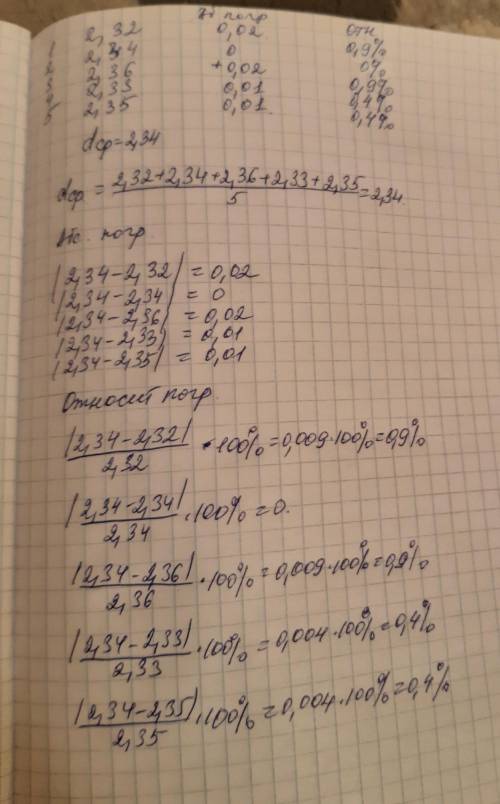 Аб погр отн
1 2,32 0,02 0,9%
2 2,34 0 0%
3 2,36 +0,02 0,9%
4 2,33 0,01 0,4%
5 2,35 0,01 0,4%
dср=2,34
dср = 2,32+2,34+2,36+2,33+2,35/5=2,34
Абс. погр.
|2,34-2,32| = 0,02
|2,34-2,34| = 0
|2,34-2,36| = 0,02
|2,34-2,33| = 0,01
|2,34-2,35| = 0,01
Относит погр.
|2,34-2,32|/2,32 · 100%=0,009·100%=0,9%
|2,34-2,34|/2,34 · 100%=0.
|2,34-2,36|/2,36 · 100%=0,009·100%=0,9%
|2,34-2,33|/2,33 · 100%=0,004·100%=0,4%
|2,34-2,35|/2,35 · 100%=0,004·100%=0,4%